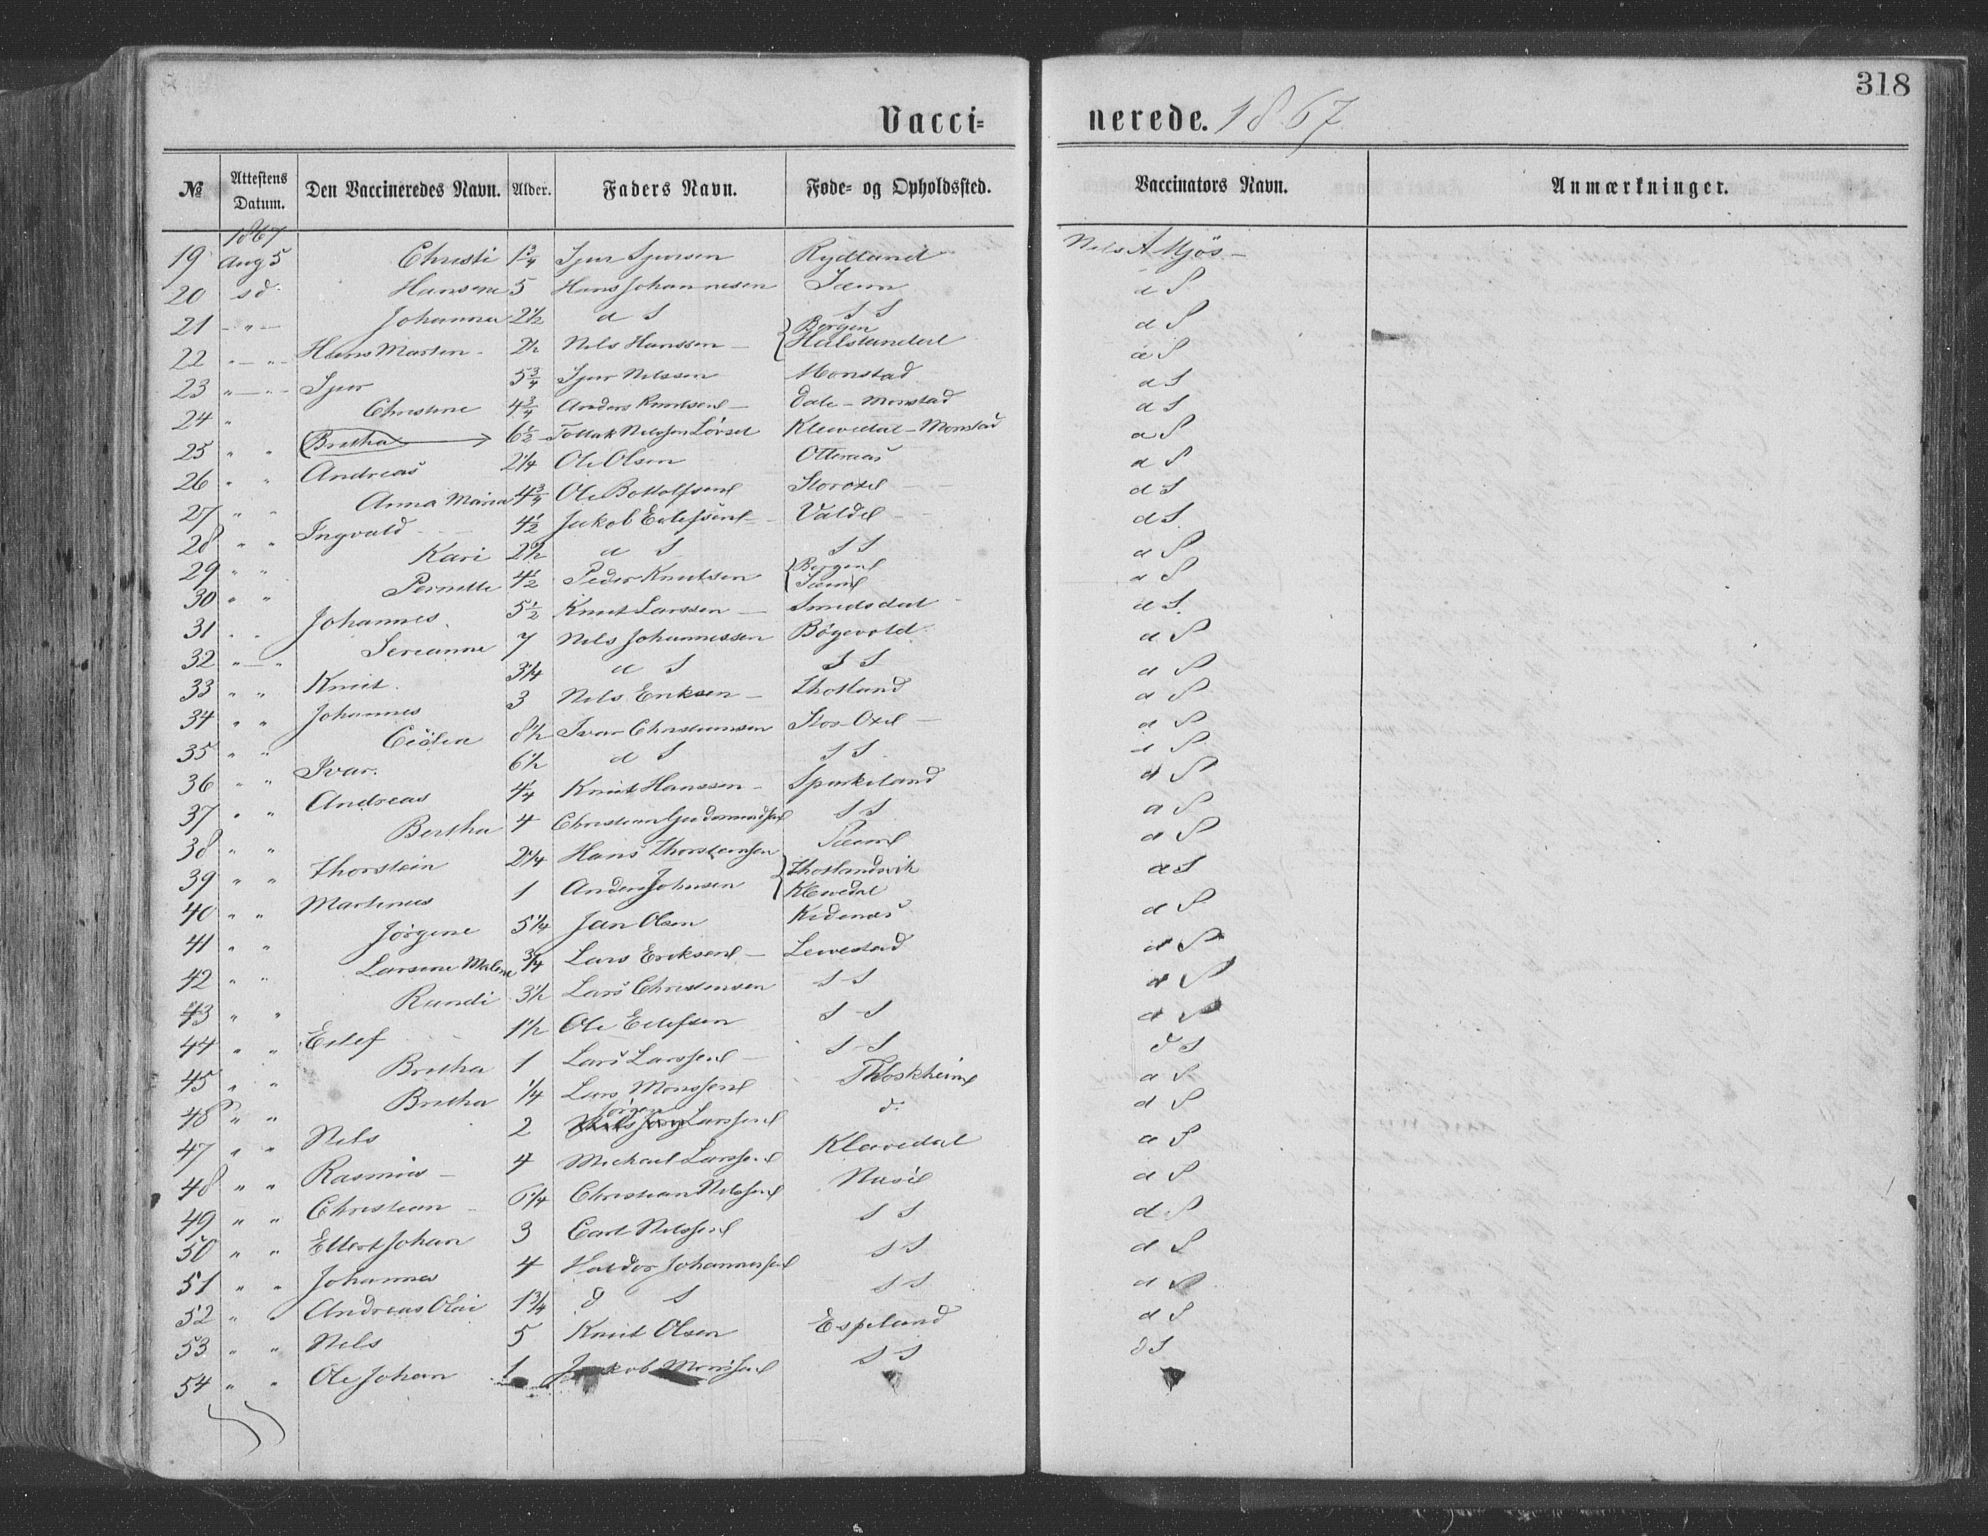 318
Vaccinerede. 1867
№ Attestens Datum. Den Vaccineredes Navn. Alder. Faders Navn. Føde- og Opholdssted. Vaccinators Navn. Anmærkninger.
1867
19 Aug 5 Christi 1 3/4 Sjur Sjursen Rydland Nels A Mjøs —
20 sd Hansene 5 Hans Johannesen Sæim d S
21 — " — Johanna 2 1/2 d S S S d S
22 " — " Hans Marten 2 1/2 Nels Hanssen — { Bergen Halstendal d S
23 " — " Sjur 5 3/4 Sjur Nelssen Monstad d S
24 " Christine 4 3/4 Anders Knutsen — Dale — Monstad d S
25 " " Bretha 6 1/2 Tollak Nelssen Lövset Klevedal — Monstad d S
26 " " Andreas 2 1/4 Ole Olsen Otteraas d S
27 " " Anna Maria 4 3/4 Ole Bottolfsen Storoxel d S
28 " " Ingvald 4 1/2 Jakob Eilefsen — Valdel d S
29 " " Kari 2 1/2 d S S S d S
30 " " Pernelle 4 1/2 Peder Knutsen { Bergen Sæim d S
31 " " Johannes 5 1/2 Knut Larssen — Smedsdal d S
32 " — " Serianne 7 Nels Johannessen Bøgevold d S
33 " " Knut 3 1/4 d S S S d S
34 " " Johannes 3 Nels Eriksen — Thotland d S
35 " " Cecilia 8 1/2 Ivar Christiansen Stor Oxel — d S
36 " " Ivar 6 1/2 d S S S d S
37 " " Andreas 4 1/4 Knut Hanssen — Sparkeland d S
38 " " Bertha 4 Christian Gudmundsen S S d S
39 " " Thorstein 2 1/4 Hans Thorstensen Sæim d S
40 " " Martinus 1 Anders Johnsen { Thotlandsvik Klevedal d S
41 " " Jørgine 5 1/4 Jan Olsen Kidenæs d S
42 " " Larsine Malene 3/4 Lars Eriksen — Levestad d S
43 " " Randi 3 1/2 Lars Christensen S S d S
44 " " Eilef 1 1/2 Ole Eilefsen S S d S
45 " " Bretha 1 Lars Larssen — S S d S
46 " " Bretha 1/4 Lars Monssen Thoskheim d S
47 " " Nels 2 Jörgen Larssen d. d S
48 " " Rasmus — 4 Michael Larssen Klævedal d S
49 " " Christian 6 1/4 Christian Nelssen Risöe d S
50 " " Ellert Johan 3 Carl Nelssen S S d S
51 " " Johannes 4 Haldor Johannessen S S d S
52 " " Andreas Olai 1 3/4 d S S S d S
53 " " Nels 5 Knut Olsen Espeland d S
54 " " Ole Johan 1 Jakob Monssen S S d S